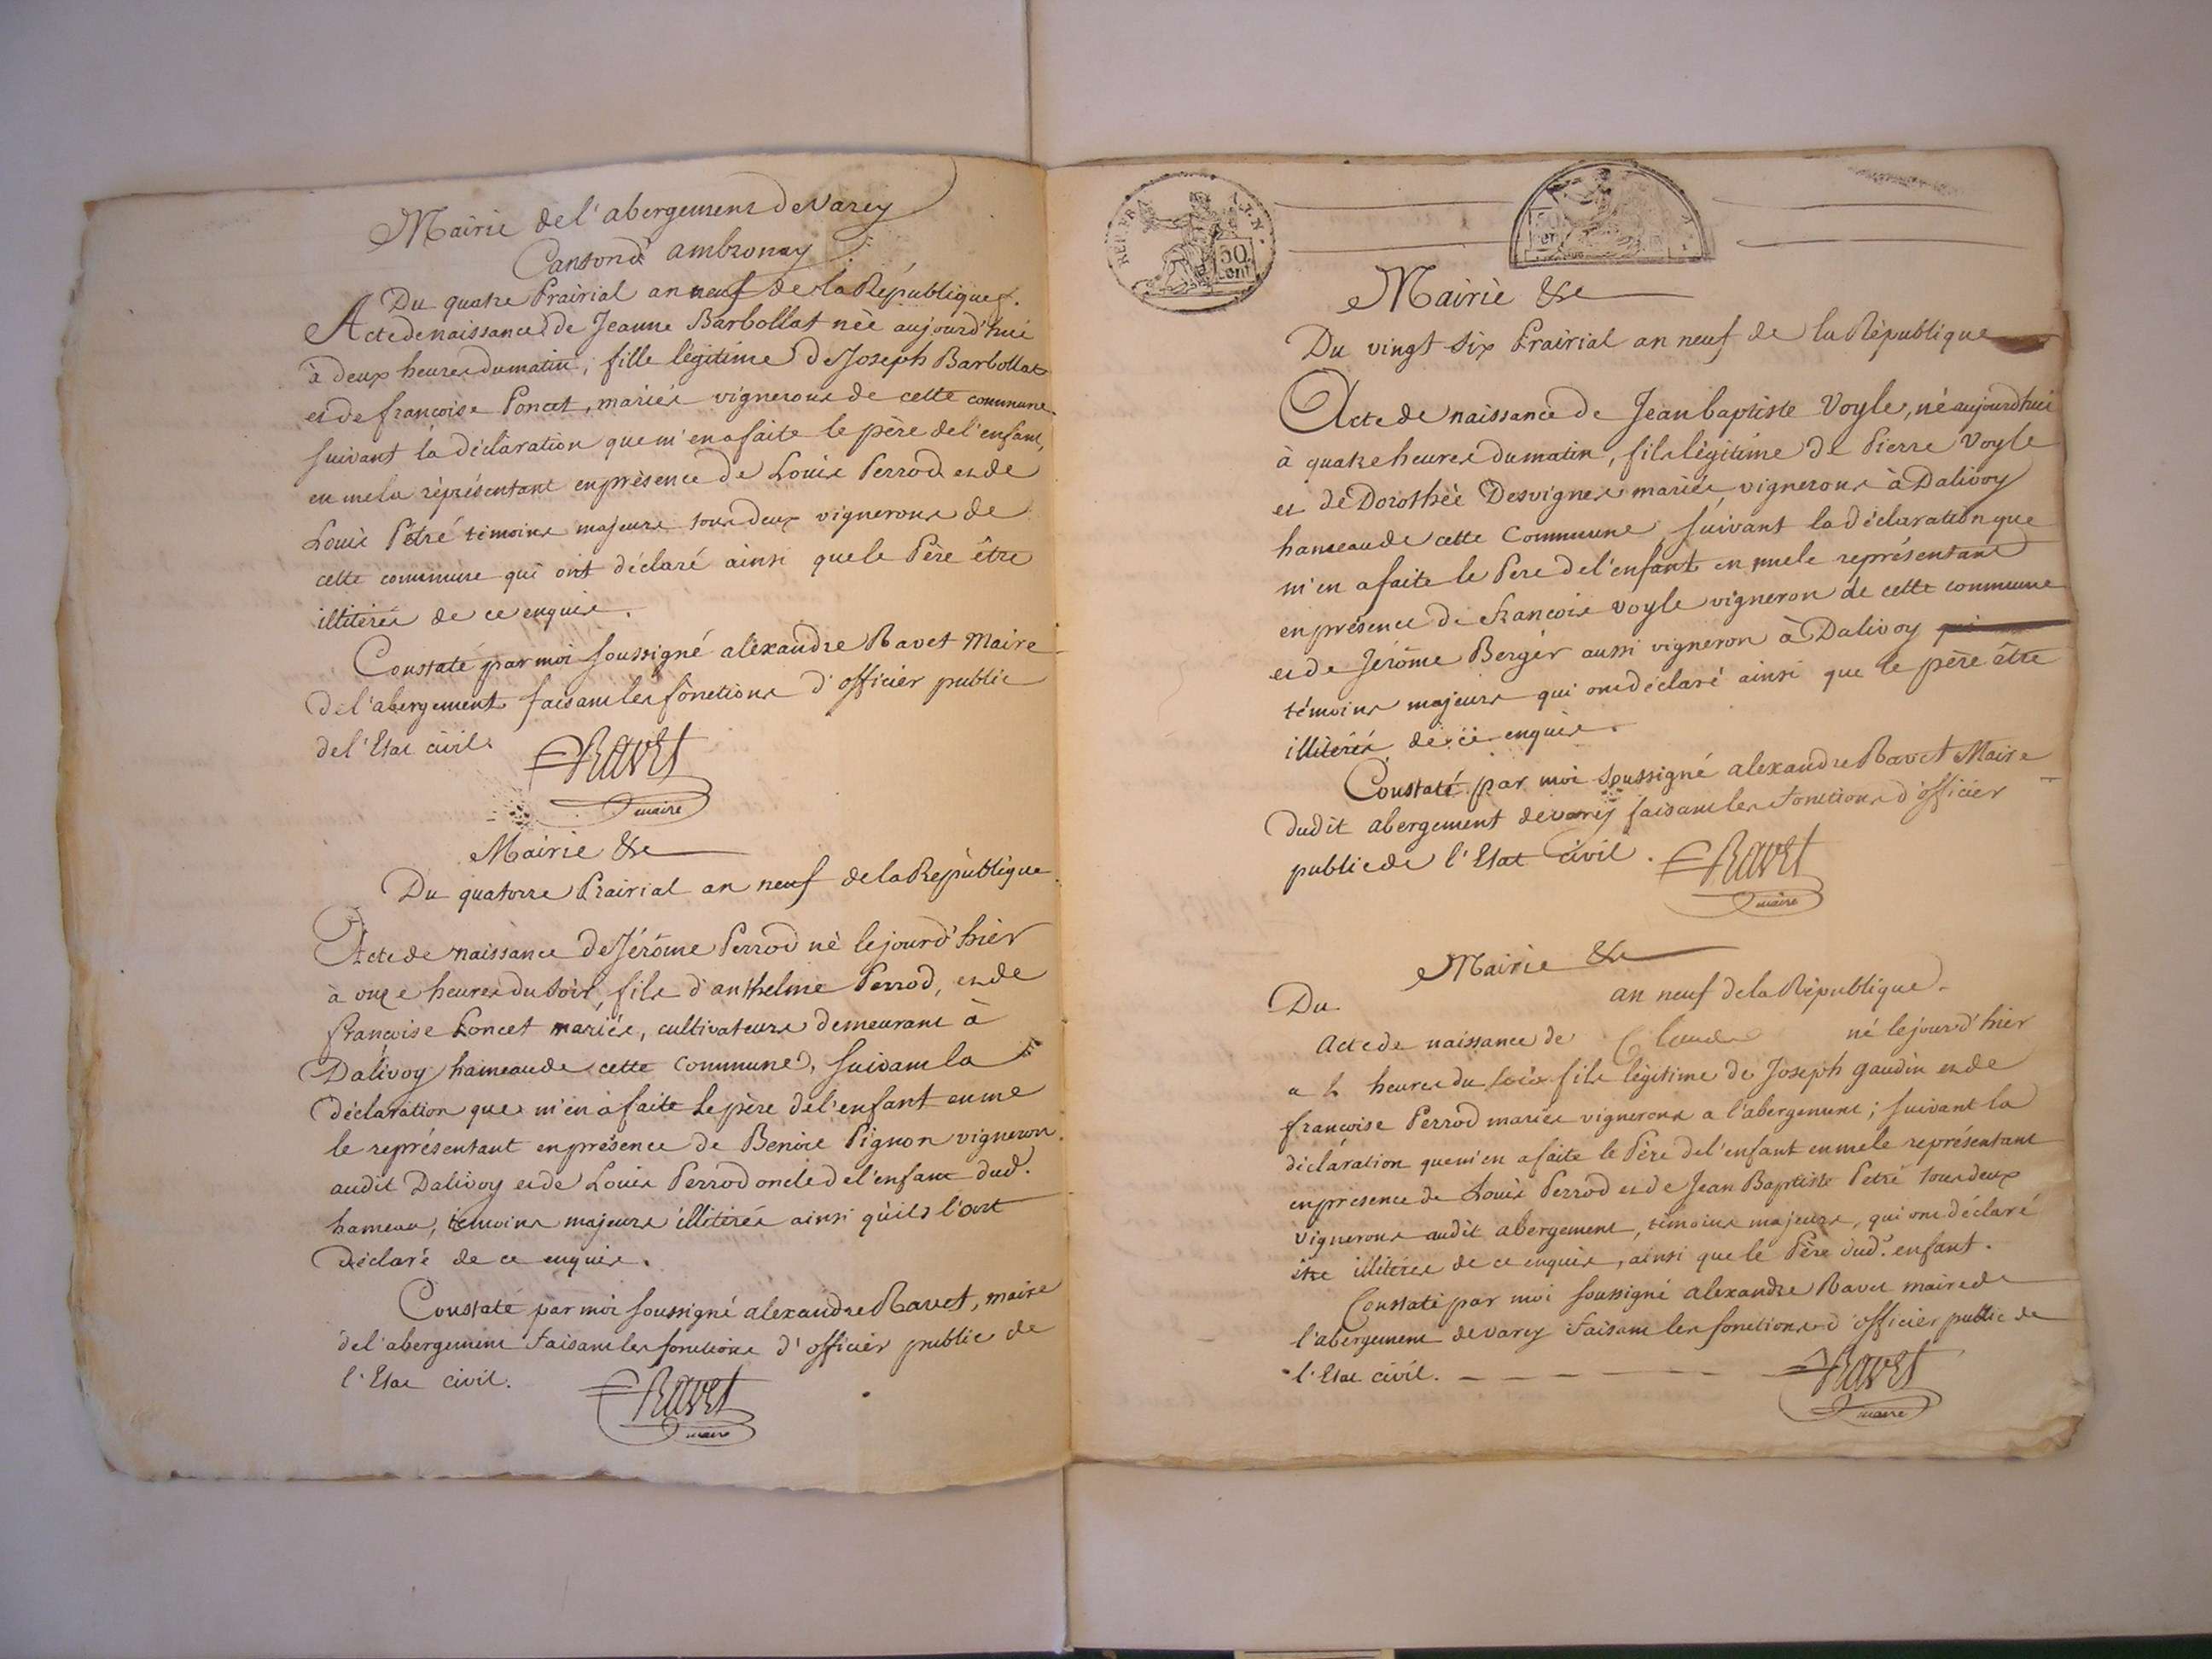 Mairie de l'abergement de Varey
Canton d'ambronay
Du quatre Prairial an neuf de la République.
Acte de naissance de Jeanne Barbollat née aujourd'hui
à deux heures du matin, fille légitime de Joseph Barbollat
et de françoise Poncet, mariés vignerons de cette commune
suivant la déclaration que m'en a faite le père de l'enfant,
en me la réprésentant en présence de Louis Perrod et de
Louis Pétré témoins majeurs tous deux vignerons de
cette commune qui ont déclaré ainsi que le Père être
illitérés de ce enquis.
Constaté par moi soussigné aléxandre Ravet Maire
de l'abergement faisant les fonctions d'officier public
de l'Etat civil.
Ravet
maire
Mairie &c
Du quatorze Prairial an neuf de la République.
Acte de naissance de Jérôme Perrod né le jour d'hier
à onze heures du soir, fils d'anthelme Perrod, et de
françoise Poncet mariés, cultivateurs demeurant à
Dalivoy hameau de cette commune, suivant la
déclaration que m'en a faite le père de l'enfant en me
le représentant en présence de Benoit Pignon vigneron
audit Dalivoy et de Louis Perrod oncle de l'enfant dud.
hameau, témoins majeurs illitérés ainsi qu'ils l'ont
déclaré de ce enquis.
Constaté par moi soussigné aléxandre Ravet, maire
de l'abergement faisant les fonctions d'officier public de
l'Etat civil.
Ravet
maire
REP. FRA
50
cent
Mairie &c
Du vingt six Prairial an neuf de la République
Acte de naissance de Jean baptiste Voyle, né aujourd'hui
à quatre heures du matin, fils légitime de Pierre Voyle
et de Dorothée Desvignes mariés, vignerons à Dalivoy
hameau de cette commune, suivant la déclaration que
m'en a faite le Pere de l'enfant en me le représentant
en présence de francois voyle vigneron de cette commune
et de Jérôme Berger aussi vigneron à Dalivoy
témoins majeurs qui ont déclaré ainsi que le père être
illitérés de ce enquis.
Constaté par moi soussigné alexandre Ravet Maire
dudit abergement de varey faisant les fonctions d'officier
public de l'Etat civil.
Ravet
maire
Mairie &c
Du an neuf de la République.
Acte de naissance de Claude né le jour d'hier
a heures du soir fils légitime de Joseph gaudin et de
françoise Perrod mariés vignerons a l'abergement; suivant la
déclaration que m'en a faite le Père de l'enfant en me le représentant
en presence de Louis Perrod et de Jean Baptiste Petré tous deux
vignerons audit abergement, témoins majeurs, qui ont déclaré
être illitérés de ce enquis, ainsi que le Père dud. enfant.
Constaté par moi soussigné alexandre Ravet maire de
l'abergement de varey faisant les fonctions d'officier public de
l'Etat civil.
Ravet
maire